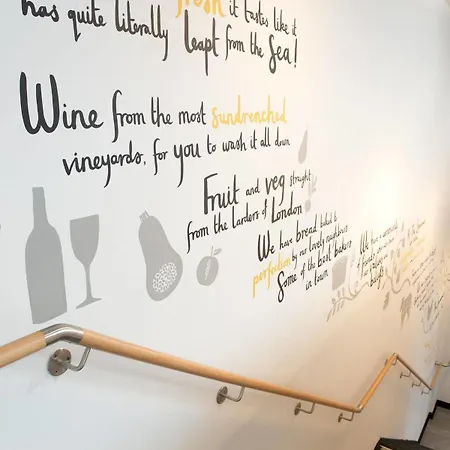 fresh it tastes like it
has quite literally leapt from the sea!
Wine from the most sundrenched
vineyards, for you to wash it all down
Fruit and veg straight
from the larders of London
We have bread baked to
perfection by our lovely neighbours
Some of the best bakers
in town
We have a